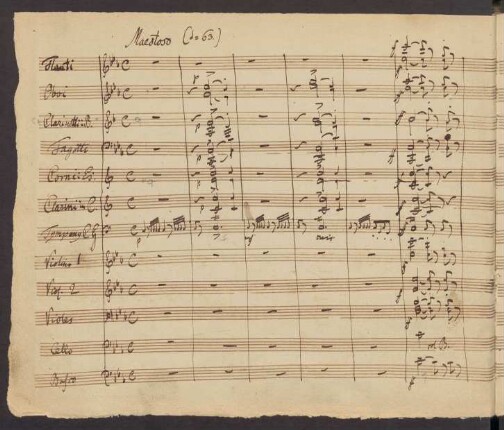 Maestoso (♩= 63.)
Flauti
Oboi
Clarinetti in B.
Fagotti
Corni in Es.
Clarini in C.
Tympany C. G
Violin 1
Viol. 2
Violas
Cello
Basso